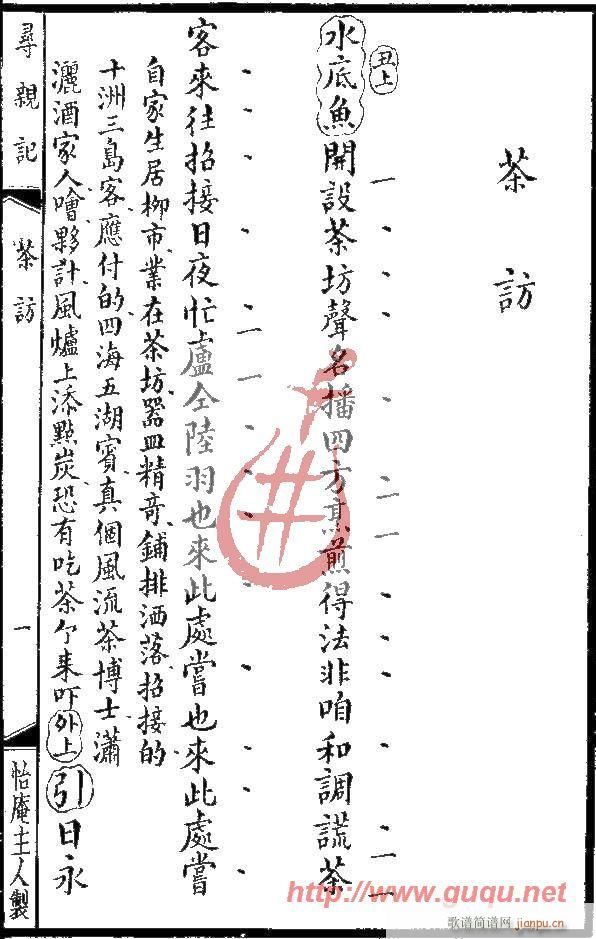 茶訪
丑上
水底魚開設茶坊聲名播四方烹煎得法非咱和調謊茶
客來往招接日夜忙盧仝陸羽也來此處嘗也來此處嘗
自家生居柳市業在茶坊器皿精奇鋪排洒落招接的
十洲三島客應付的四海五湖賓真個風流茶博士瀟
灑酒家人噲夥計風爐上添點炭恐有吃茶个來吓外上引日永
尋親記
茶訪
一
怡庵主人製
http://www.guqu.net
歌谱简谱网
jianpu.cn